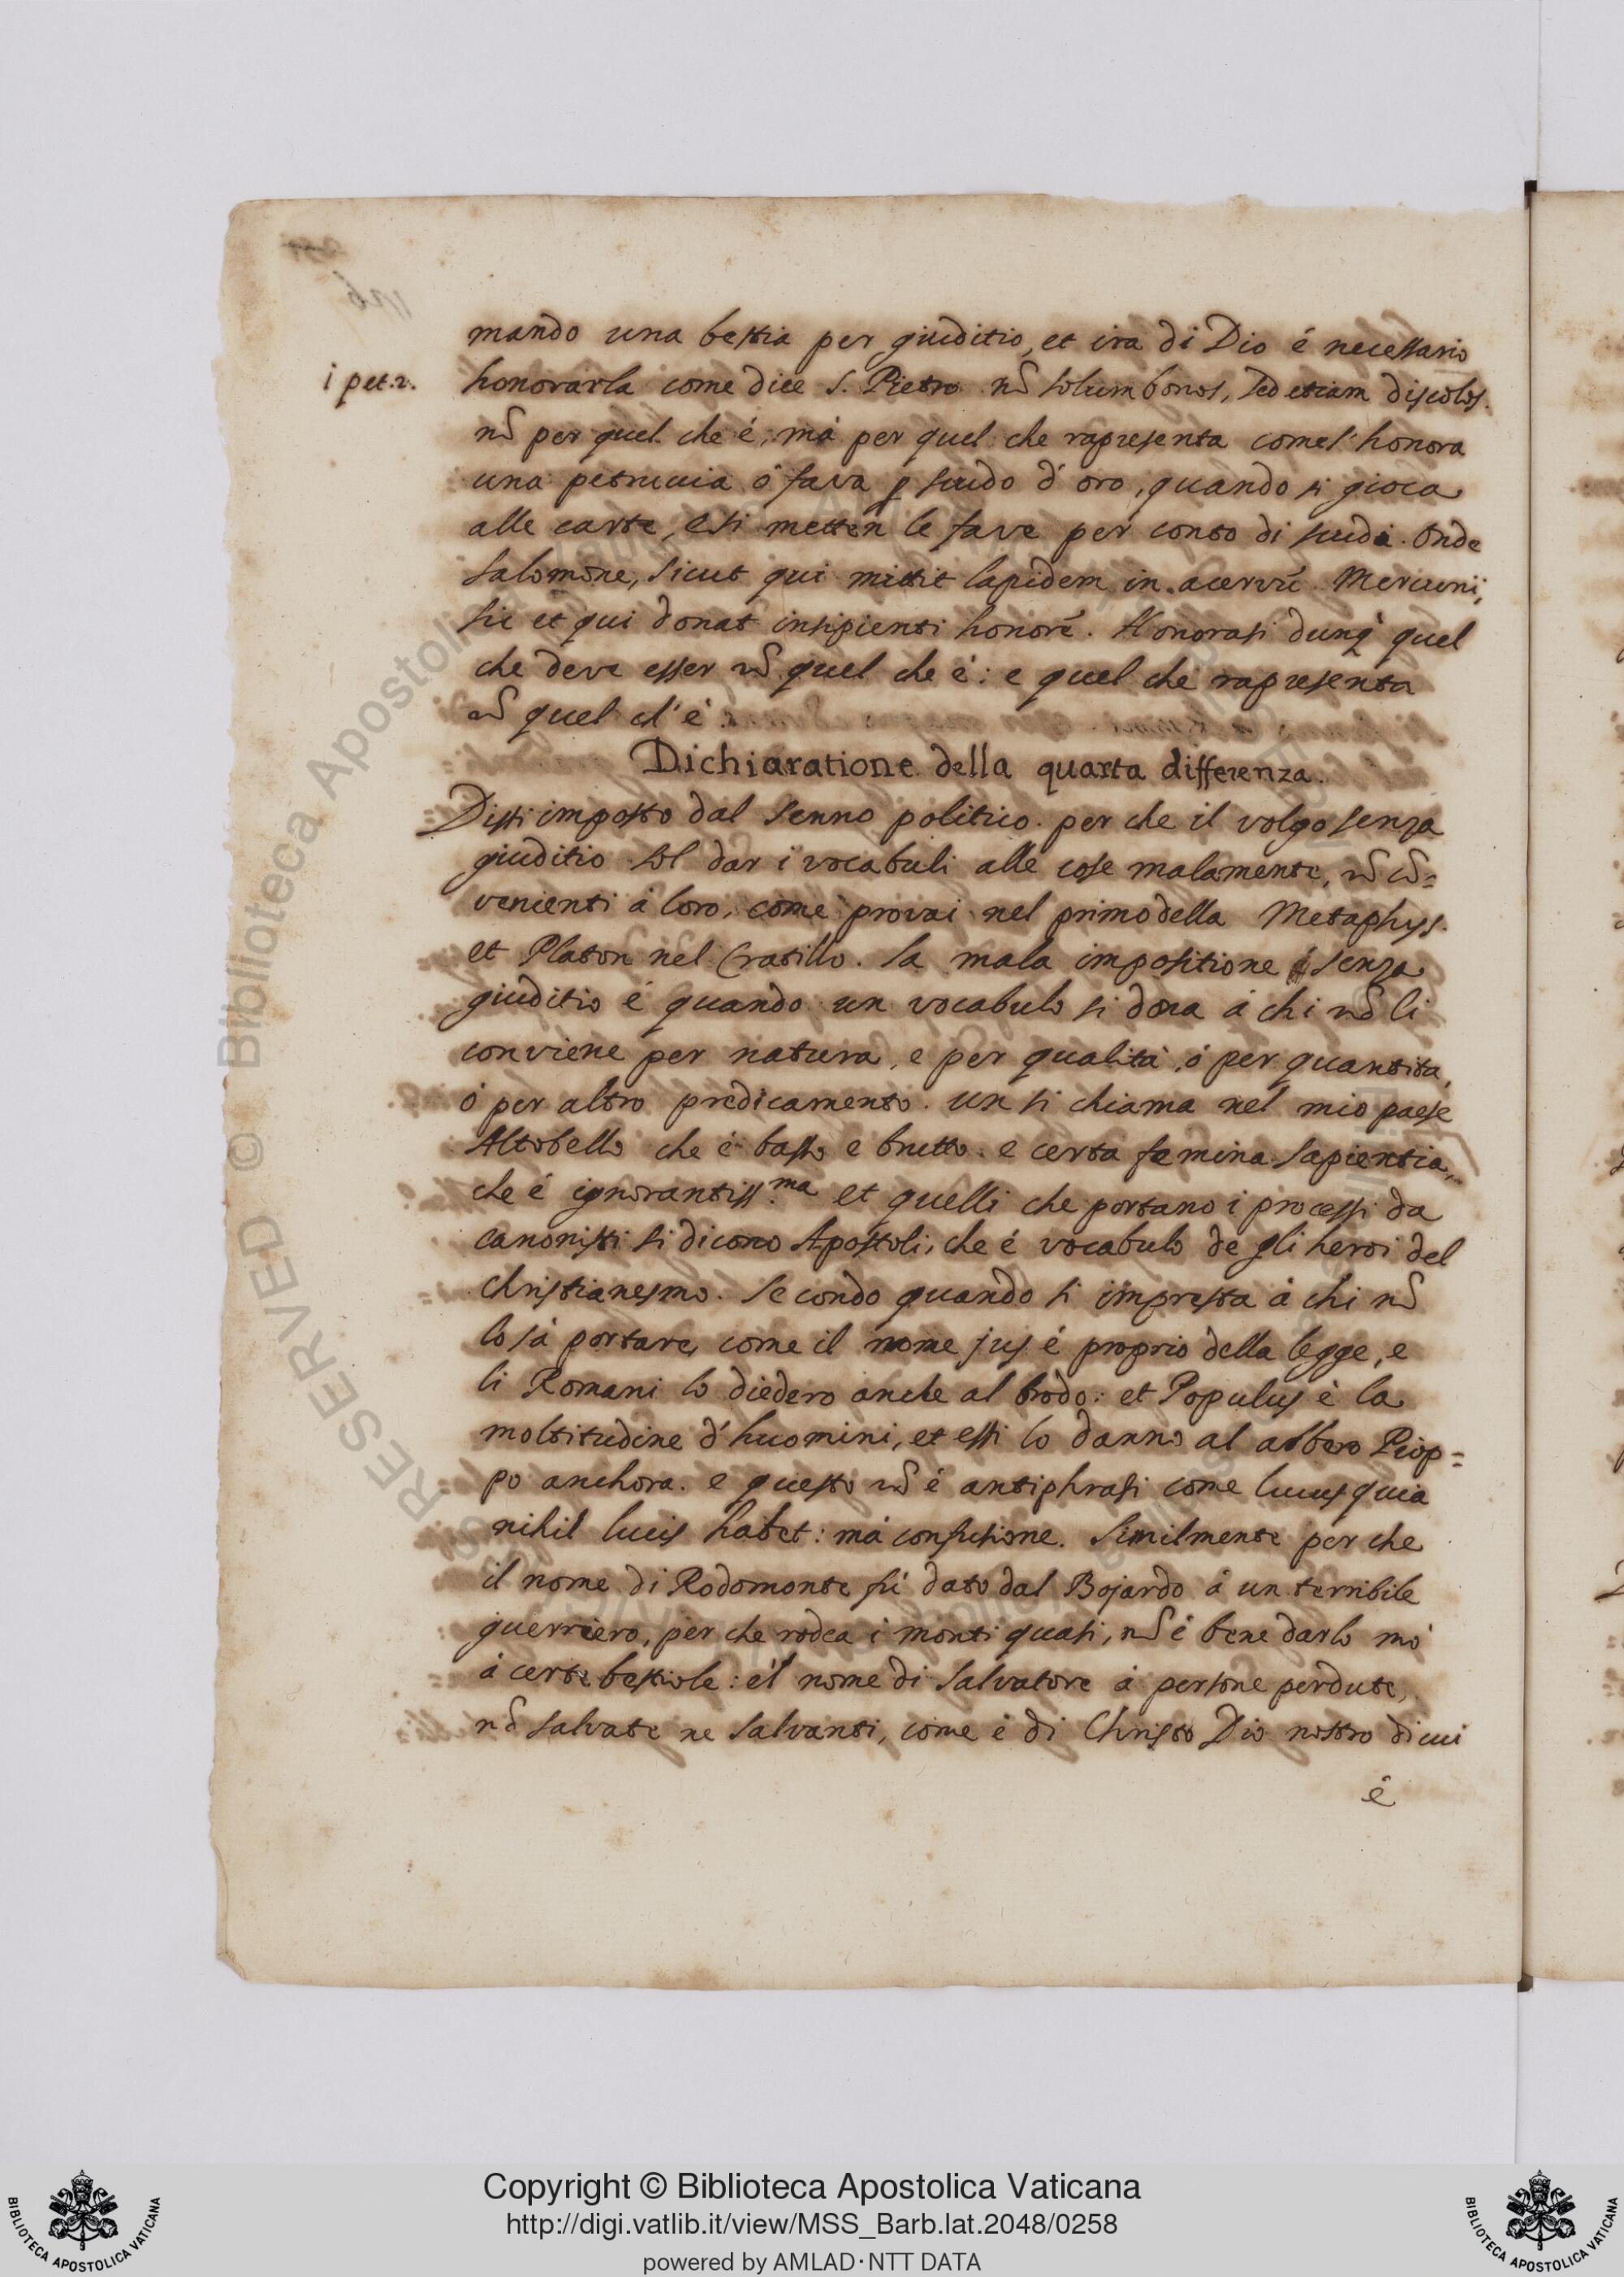 mando una bestia per giuditio, et ira di Dio é necessario
i pet. 2.
honorarla come dice S. Pietro nõ solum bonos, sed etiam discolos.
nõ per quel che é, má per quel che rapresenta come s'honora
una petruccia ó fava ꝑ scudo d'oro, quando si gioca
alle carte, e si metten le fave per conto di scudi. Onde
Salomone, sicut qui mittit lapidem in acervũ Mercurij,
sic et qui donat insipienti honorẽ. Honorasi dunq̃ quel
che deve esser nõ quel che é: e quel che rapresenta
nõ quel ch'é.
Dichiaratione della quarta differenza.
Dissi imposto dal senno politico. per che il volgo senza
giuditio sol dar i vocabuli alle cose malamente, nõ cõ=
venienti á loro, come provai nel primo della Metaphys.
et Platon nel Cratillo. la mala impositione é senza
giuditio é quando un vocabulo si dona á chi nõ li
conviene per natura, e per qualitá, ó per quantita,
ó per altro predicamento. un si chiama nel mio paese
Altobello che é basso e brutto. e certa femina Sapientia,
che é ignorantiss.ma et quelli che portano i processi da
canonisti si dicono Apostoli, che é vocabulo de gli heroi del
christianesmo. Secondo quando si impresta á chi nõ
lo sá portare, come il nome jus é proprio della legge, e
li Romani lo diedero anche al brodo: et Populus é la
moltitudine d'huomini, et essi lo danno al albero Piop=
po anchora. e questo nõ é antiphrasi come lucus quia
nihil lucis habet: má confusione. Similmente per che
il nome di Rodomonte fú dato dal Bojardo á un terribile
guerriero, per che rodea i monti quasi, nõ é bene darlo mó
á certe bestiole: é'l nome di Salvatore á persone perdute,
nõ salvate ne salvanti, come é di Christo Dio nostro di cui
é
RESERVED © Biblioteca Apostolica
Copyright © Biblioteca Apostolica Vaticana
http://digi.vatlib.it/view/MSS_Barb.lat.2048/0258
powered by AMLAD·NTT DATA
BIBLIOTECA APOSTOLICA VATICANA
BIBLIOTECA APOSTOLICA VATICANA